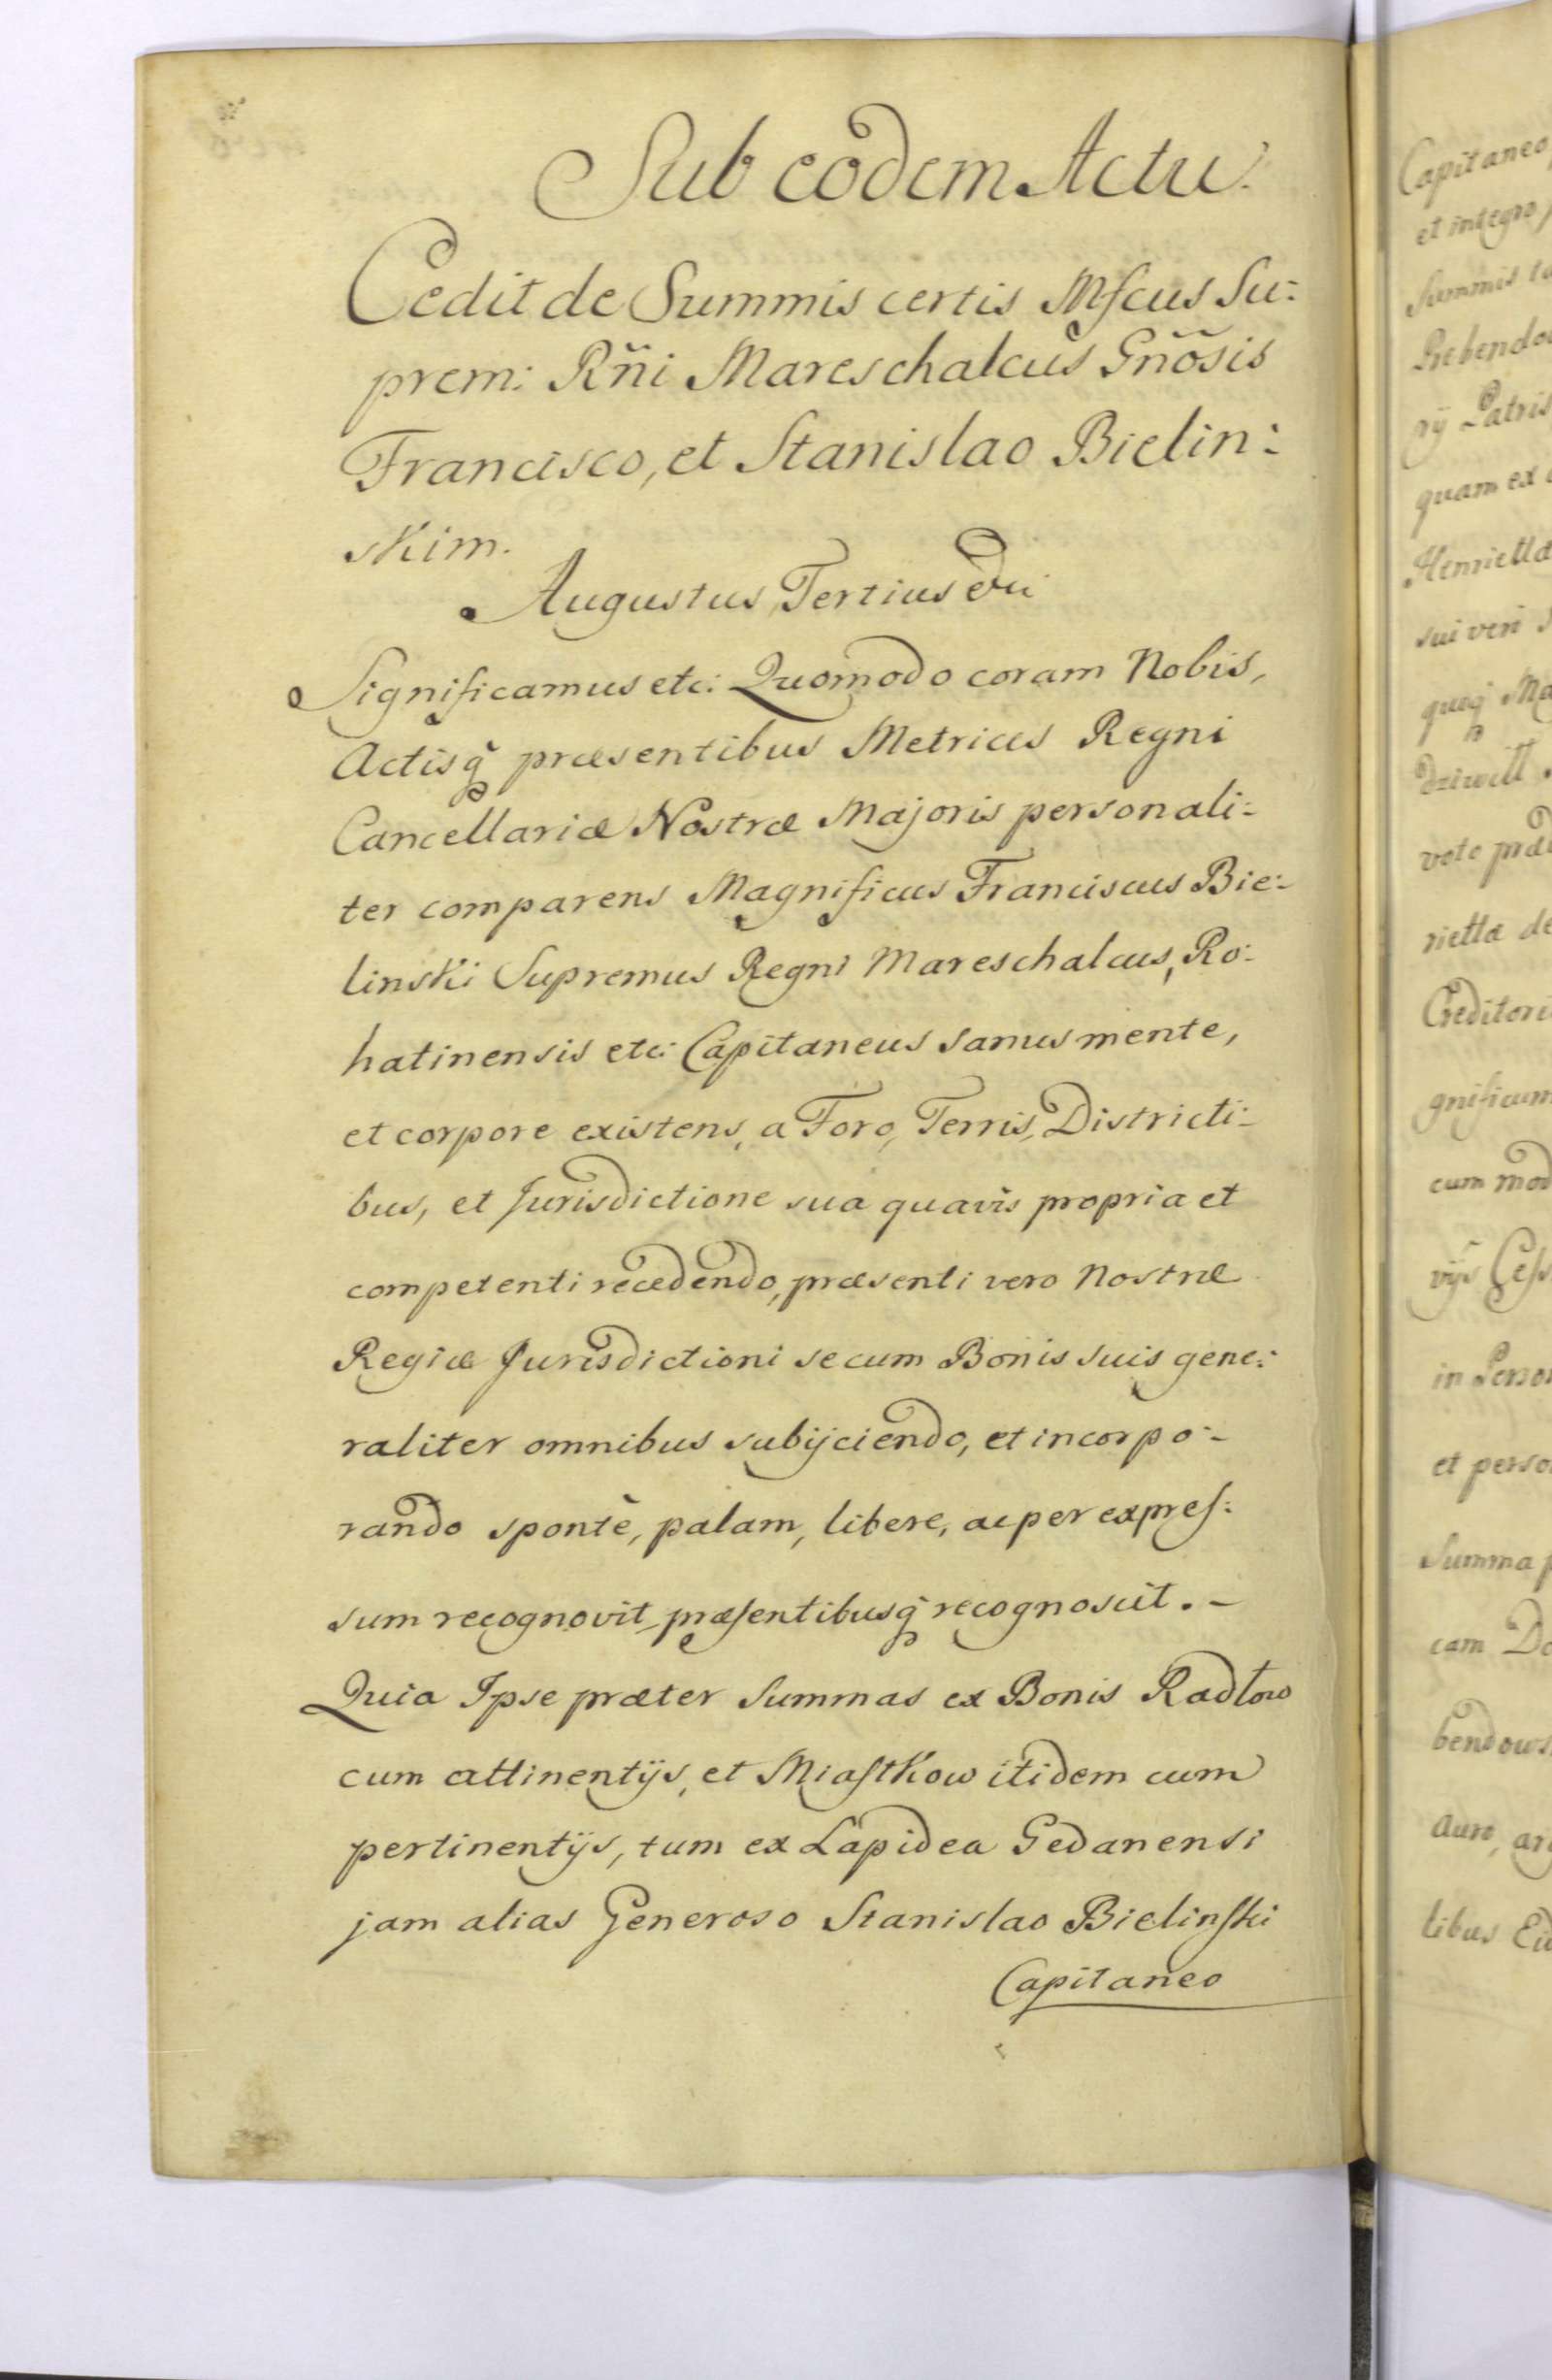 Sub eodem Actu.
Cedit de Summis certis Mfcus Su:
prem: Rñi Mareschalcus Gñosis
Francisco, et Stanislao Bielin:
skim.
Augustus Tertius
Significamus etc: Quomodo coram Nobis,
Actisq̃ præsentibus Metrices Regni
Cancellariæ Nostræ Majoris personali:
ter comparens Magnificus Franciscus Bie:
linski Supremus Regni Mareschalcus, Ro:
hatinensis etc: Capitaneus sanus mente,
et corpore existens, a Foro, Terris, Districti:
bus, et Jurisdictione sua quavis propria et
competenti recedendo, præsenti vero Nostræ
Regiæ Jurisdictioni se cum Bonis suis gene:
raliter omnibus subijciendo, et incorpo:
rando spontè, palam, libere, ac per expreſ:
sum recognovit, præſentibusq̃ recognoscit. -
Quia Ipse præter Summas ex Bonis Radłow
cum attinentijs, et Miaſtkow itidem cum
pertinentijs, tum ex Lapidea Gedanensi
jam alias Generoso Stanislao Bielinſki
Capitaneo
Capitaneo
et integro
Summis
rÿ Patris
quam ex
Henriettæ
sui veri
quoq̃
voto
riettæ de
Creditori
gnificum
cum mod
in Person
et perso
Summa
cam
bendows
auro, arg
libus